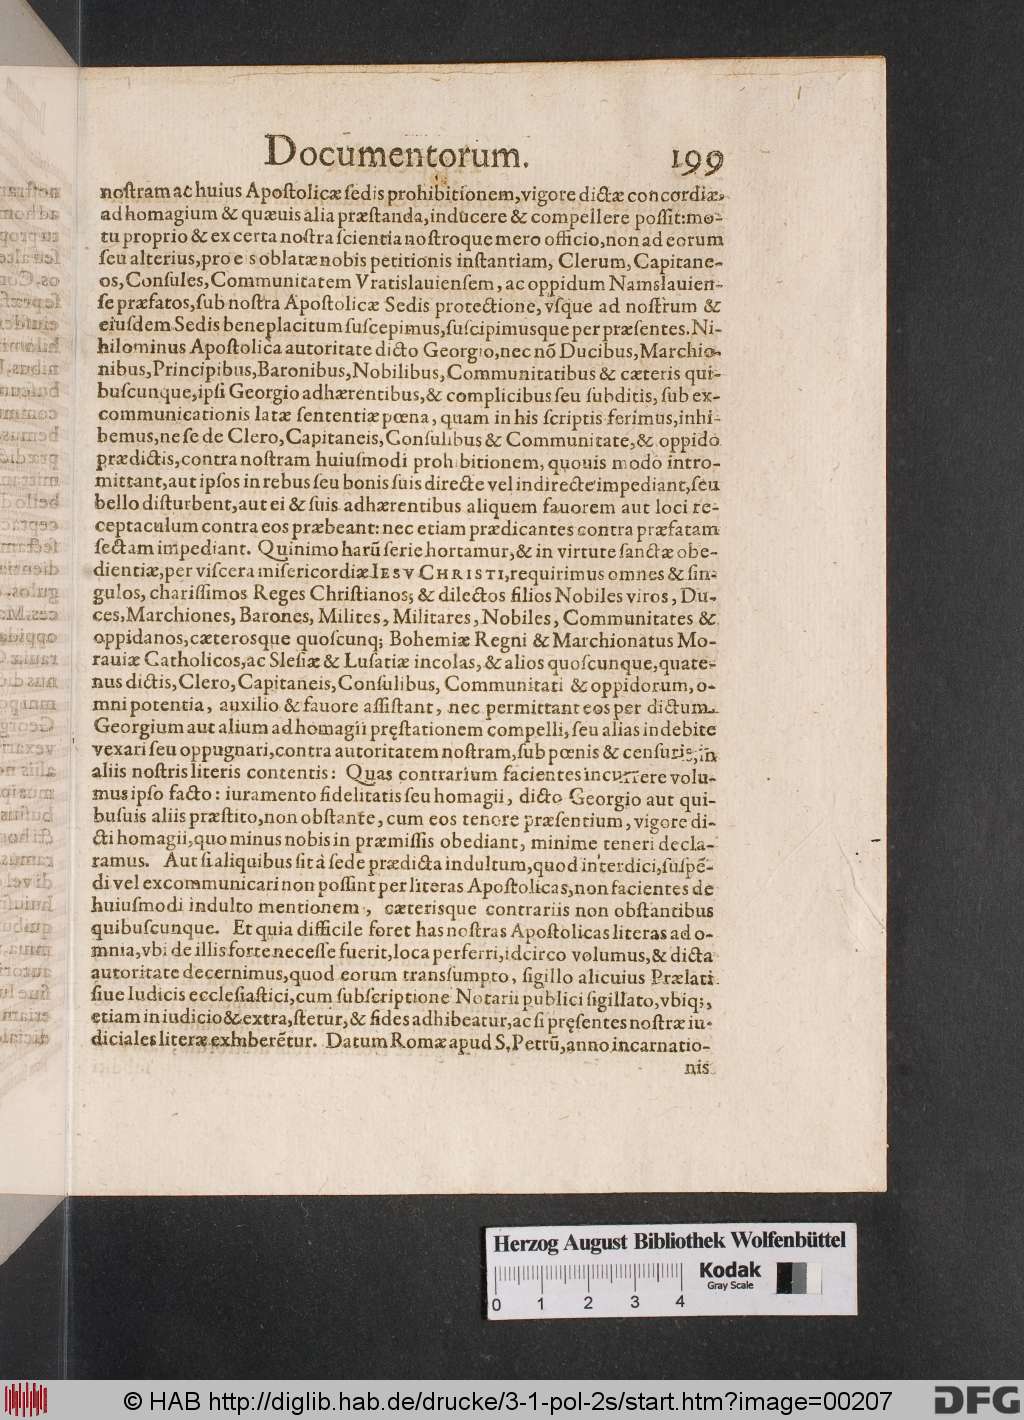 Documentorum. 199
noſtram ac huius Apoſtolicæ ſedis prohibitionem, vigore dictæ concordiæ,
ad homagium & quæuis alia præſtanda, inducere & compellere poſſit: mo-
tu proprio & ex certa noſtra ſcientia noſtroque mero officio, non ad eorum
ſeu alterius, pro eis oblatæ nobis petitionis inſtantiam, Clerum, Capitane-
os, Conſules, Communitatem Vratislauienſem, ac oppidum Namslauien-
ſe præfatos, ſub noſtra Apoſtolicæ Sedis protectione, vſque ad noſtrum &
eiuſdem Sedis beneplacitum ſuſcepimus, ſuſcipimusque per præſentes. Ni-
hilominus Apoſtolica autoritate dicto Georgio, nec nō Ducibus, Marchio-
nibus, Principibus, Baronibus, Nobilibus, Communitatibus & cæteris qui-
buſcunque, ipſi Georgio adhærentibus, & complicibus ſeu ſubditis, ſub ex-
communicationis latæ ſententiæ pœna, quam in his ſcriptis ferimus, inhi-
bemus, ne ſe de Clero, Capitaneis, Conſulibus & Communitate, & oppido
prædictis, contra noſtram huiuſmodi prohibitionem, quouis modo intro-
mittant, aut ipſos in rebus ſeu bonis ſuis directe vel indirecte impediant, ſeu
bello diſturbent, aut ei & ſuis adhærentibus aliquem fauorem aut loci re-
ceptaculum contra eos præbeant: nec etiam prædicantes contra præfatam
ſectam impediant. Quinimo harū ſerie hortamur, & in virtute ſanctæ obe-
dientiæ, per viſcera miſericordiæ IESV CHRISTI, requirimus omnes & ſin-
gulos, chariſſimos Reges Chriſtianos; & dilectos filios Nobiles viros, Du-
ces, Marchiones, Barones, Milites, Militares, Nobiles, Communitates &
oppidanos, cæterosque quoſcunq; Bohemiæ Regni & Marchionatus Mo-
rauiæ Catholicos, ac Sleſiæ & Luſatiæ incolas, & alios quoſcunque, quate-
nus dictis, Clero, Capitaneis, Conſulibus, Communitati & oppidorum, o-
mni potentia, auxilio & fauore aſſiſtant, nec permittant eos per dictum
Georgium aut alium ad homagii pręſtationem compelli, ſeu alias indebite
vexari ſeu oppugnari, contra autoritatem noſtram, ſub pœnis & cenſuris, in
aliis noſtris literis contentis: Quas contrarium facientes incurrere volu-
mus ipſo facto: iuramento fidelitatis ſeu homagii, dicto Georgio aut qui-
buſuis aliis præſtito, non obſtante, cum eos tenore præſentium, vigore di-
cti homagii, quo minus nobis in præmiſſis obediant, minime teneri decla-
ramus. Aut ſi aliquibus ſit à ſede prædicta indultum, quod interdici, ſuſpē-
di vel excommunicari non poſſint per literas Apoſtolicas, non facientes de
huiuſmodi indulto mentionem, cæterisque contrariis non obſtantibus
quibuſcunque. Et quia difficile foret has noſtras Apoſtolicas literas ad o-
mnia, vbi de illis forte neceſſe fuerit, loca perferri, idcirco volumus, & dicta
autoritate decernimus, quod eorum transſumpto, ſigillo alicuius Prælati
ſiue Iudicis eccleſiaſtici, cum ſubſcriptione Notarii publici ſigillato, vbiq;,
etiam in iudicio & extra, ſtetur, & fides adhibeatur, ac ſi pręſentes noſtræ iu-
diciales literæ exhiberētur. Datum Romæ apud S. Petrū, anno incarnatio-
nis
Herzog August Bibliothek Wolfenbüttel
Kodak
Gray Scale
0 1 2 3 4
© HAB http://diglib.hab.de/drucke/3-1-pol-2s/start.htm?image=00207
DFG